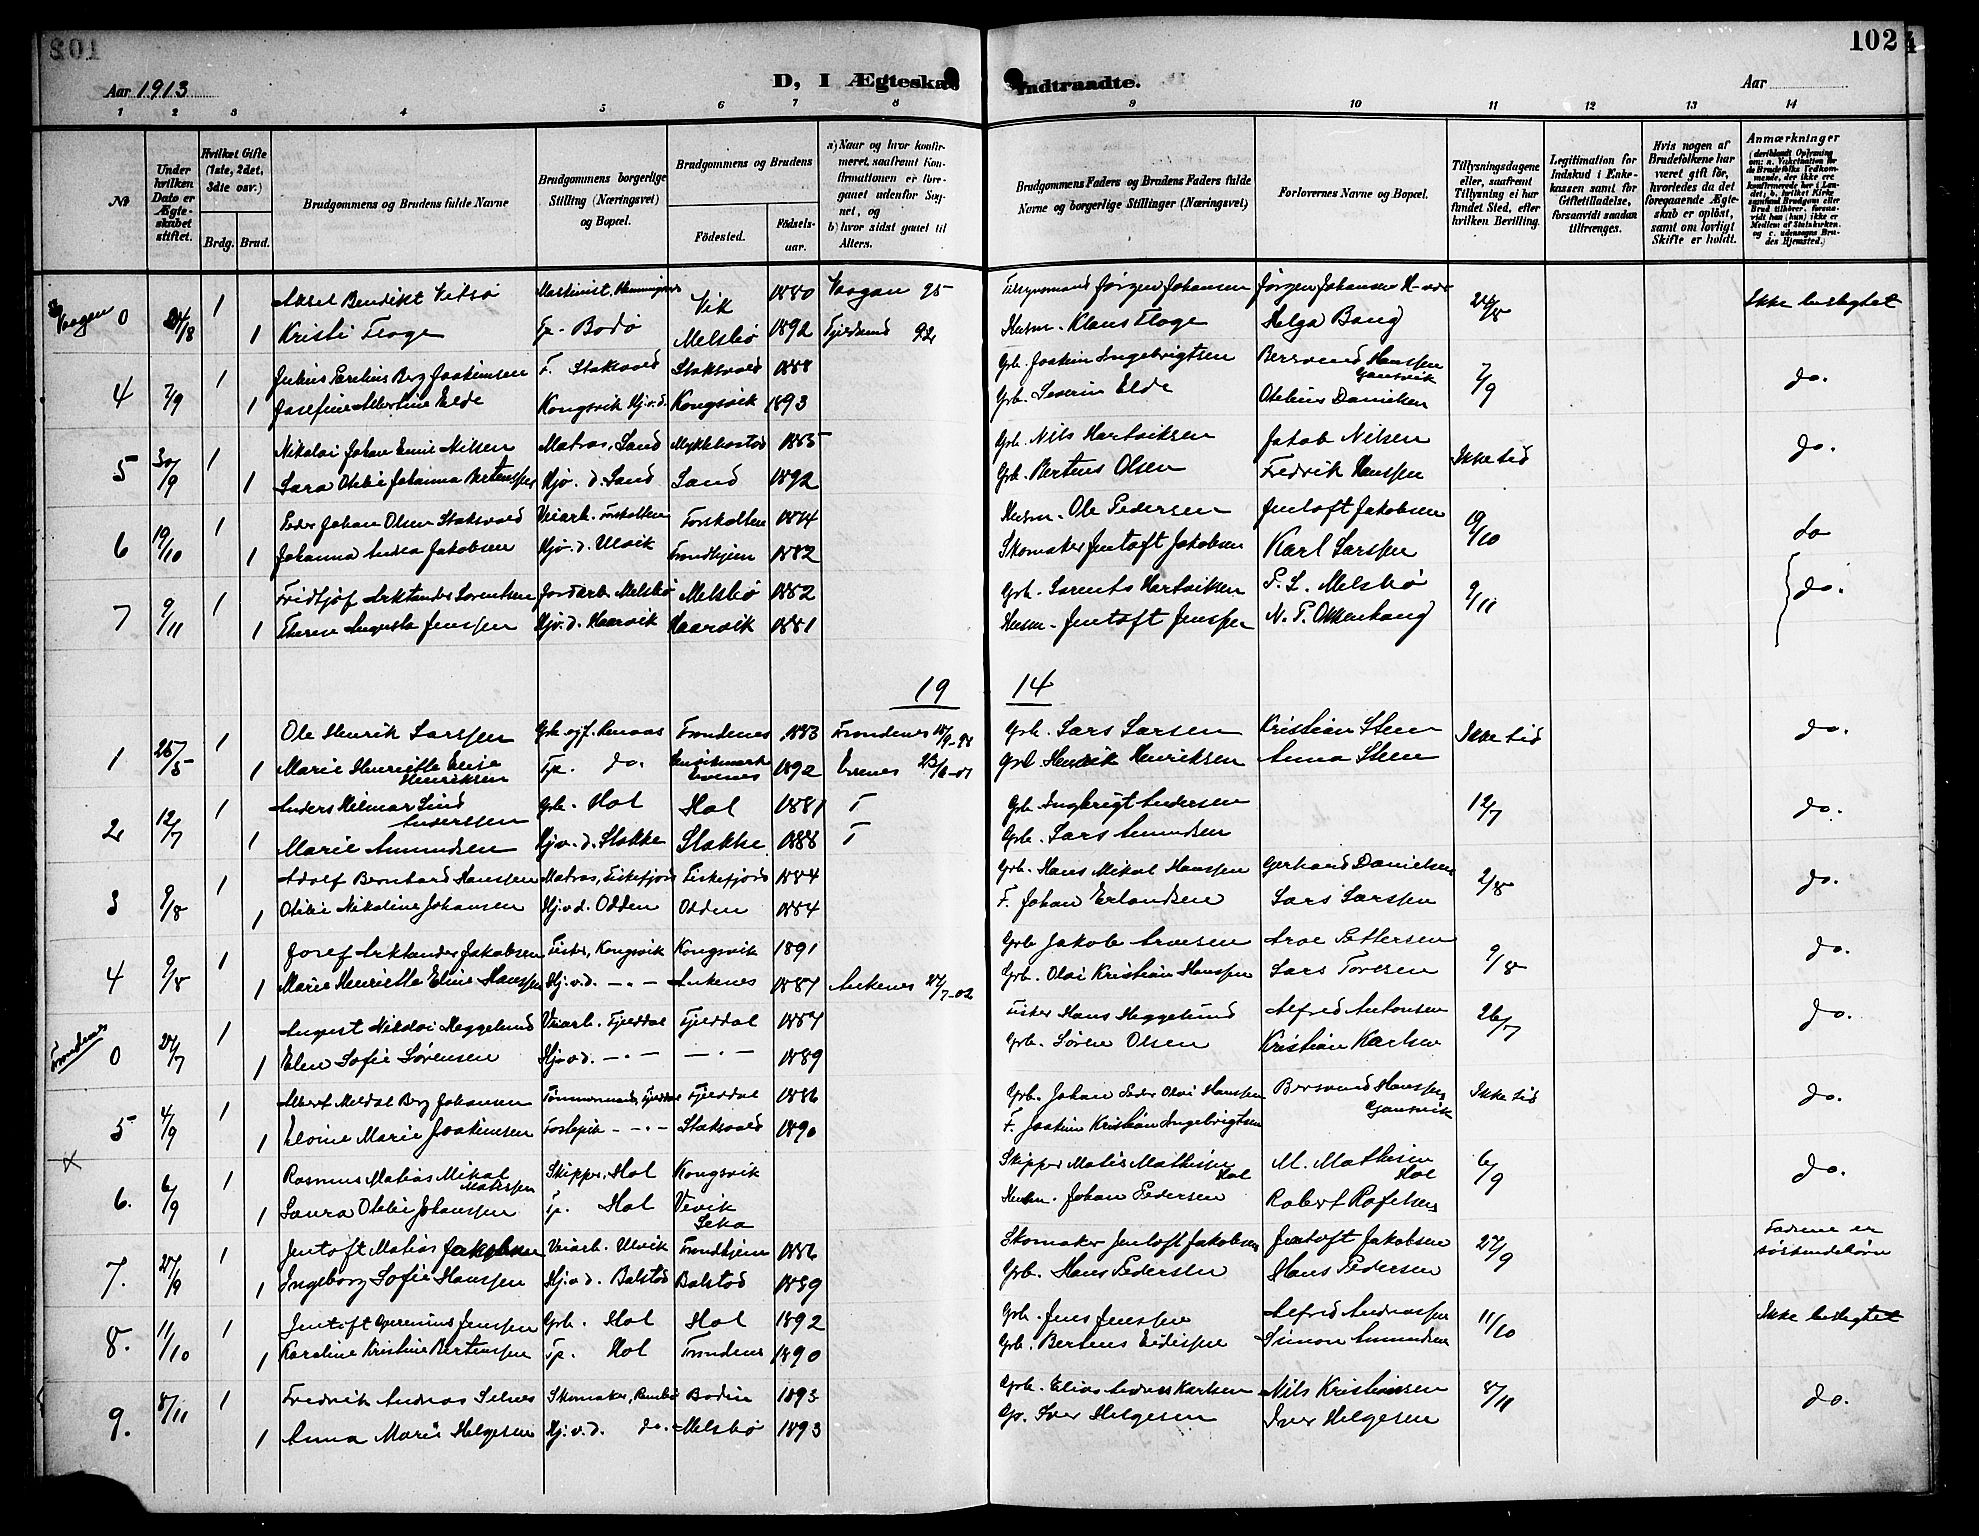 102
Aar 1913
D, I Ægteska
Indtraadte.
Aar
1 2 3 4 5 6 7 8 9 10 11 12 13 14
No
Under hvilken Dato er Ægteskabet stiftet.
Hvilket Gifte (1ste, 2det, 3die osv.)
Brdg. Brud.
Brudgommens og Brudens fulde Navne
Brudgommens borgerlige Stilling (Næringsvei) og Bopæl.
Brudgommens og Brudens
Fødested.
Fødselsaar.
a) Naar og hvor konfirmeret, saafremt Konfirmationen er foregaaet udenfor Sognet, og
b) hvor sidst gaaet til Alters.
Brudgommens Faders og Brudens Faders fulde Navne og borgerlige Stillinger (Næringsvei)
Forlovernes Navne og Bopæl.
Tillysningsdagene eller, saafremt Tillysning ei har fundet Sted, efter hvilken Bevilling.
Legitimation for Indskud i Enkekassen samt for Giftetilladelse, forsaavidt saadan tiltrænges.
Hvis nogen af Brudefolkene har været gift før, hvorledes da det foregaaende Ægteskab er opløst, samt om lovligt Skifte er holdt.
Anmærkninger
Vaagen 0 24/8 1 Aksel Benedikt Vik 1880 Vaagan 95 Jørgen Johansen Jørgen Johansen 24/8 Ikke beslegtet
1 Kristi Floge Tp. Bodø Melsbø 1892 Fjeldsund 92 Husm. Klaus Floge Helga Bang
4 7/9 1 Julius Berg Joakimsen F. Staksvold Staksvold 1888 Grb. Joakim Ingebrigtsen Bersvend Hanssen Gausvik 7/9 do.
1 Josefine Albertine Elde Kongsvik Hj.v.d. Kongsvik 1893 Grb. Severin Elde Otelius Danielsen
5 30/9 1 Nikolai Johan Emil Nilsen Matros, Sand 1885 Grb. Nils Hartviksen Jakob Nilsen Ikke tid do.
1 Sara Otilie Johanna Bertenssen Hjv. d. Sand Sand 1892 Grb. Bertens Olsen Fredrik Hanssen
6 19/10 1 Peder Johan Olsen Staksvold Veiarb. Forskolten Forskolten 1874 Husm. Ole Pedersen Jentoft Jakobsen 19/10 do
1 Johanna Andrea Jakobsen Hjv. d. Ulvik Trondhjem 1882 Skomaker Jentoft Jakobsen Karl Larssen
7 9/11 1 Fridtjof Arktander Lorentsen Jordarb. Melsbø Melsbø 1882 Grb. Lorents Hartviksen P. L. Melsbø 9/11 do.
1 Therese Augusta Jenssen Hjv. d. Haarvik Haarvik 1881 Husm. Jentoft Jenssen N. P. Okkenhaug
19 14
1 26/5 1 Ole Henrik Larssen Trondenes 1883 Trondenes 18/9-98 Grb. Lars Larsen Kristian Steen Ikke tid do.
1 Marie Henriette Elise Henriksen Tp. do. Evenes 1892 Evenes Grb. Henrik Henriksen Anna Steen
2 12/7 1 Anders Hilmar Lind Anderssen Grb. Hol Hol 1881 T Grb. Ingbrigt Andersen 12/7 do.
1 Marie Amundsen Hjv. d. Slakke Slakke 1888 T Grb. Lars Amundsen
3 9/8 1 Adolf Bernhard Hanssen Matros, Fiskefjord Fiskefjord 1884 Grb. Hans Mikal Hanssen Gerhard Danielsen 2/8 do.
1 Otilie Nikoline Johansen Hjv d. Odden Odden 1884 F. Johan Erlandsen Lars Larssen
4 9/8 1 Josef Arktander Jakobsen Fisker, Kongsvik Kongsvik 1891 Grb. Jakob Arvesen Arve Pettersen 9/8 do.
1 Marie Henriette Eline Hanssen Hj.v.d. -.- Ankenes 1887 Ankenes 27/7-02 Grb. Olai Kristian Hanssen Lars Toresen
Trondenes 0 27/7 1 August Nikolai Heggelund Veiarb. Fjeldal Fjeldal 1887 Fisker Hans Heggelund Alfred Antonsen 26/7 do.
1 Eline Sofie Sørensen Hjv d. -.- -.- 1889 Grb. Søren Olsen Kristian Karlsen
5 4/9 1 Albert Meldal Berg Johansen Tømmermand, Fjeldal Fjeldal 1886 Grb. Johan Peder Olai Hanssen Bersvend Hanssen Gausvik Ikke tid do.
1 Marie Joakimsen -.- Staksvold 1890 F. Joakim Kristian Ingebrigtsen
x
6. 6/9 1 Rasmus Matias Mikal Skipper, Hol Kongsvik Skipper Hol M. Mathisen Hol 6/9 do.
1 Laura Otilie Johanssen Tp. Hol Vevik Leka Husm. Johan Pedersen Robert Rafelsen
7. 27/9 1 Jentoft Matias Jakobsen Veiarb. Ulvik Trondhjem 1886 Skomaker Jentoft Jakobsen Jentoft Jakobsen 27/9 Fædrene er søskendebørn
1 Ingeborg Sofie Hanssen Hj.v.d. Balstad Balstad 1889 Grb. Hans Pedersen Hans Pedersen
8. 11/10 1 Jentoft Jenssen Grb. Hol Hol 1892 Grb. Jens Jenssen Alfred Andreassen 11/10 Ikke beslegtet
1 Karoline Kristine Bertenssen Tp. Hol Trondenes 1890 Grb. Bertens Eidissen Simon Amundsen
9. 8/11 1 Fredrik Andreas Selnes Skomaker, Bodin 1893 Grb. Elias Andreas Karlsen Nils Kristiansen 8/11 do.
1 Anna Marie Helgesen Hj.v.d. do. Melsbø 1893 Iver Helgesen Iver Helgesen